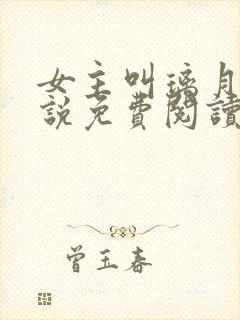 女主叫璃月
說免費閱讀
曾玉春